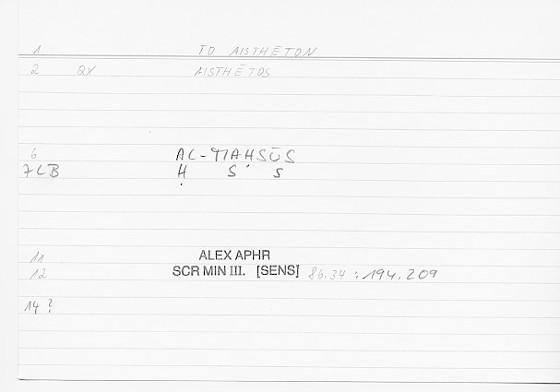 1 TO AISTHĒTON
2 QY AISTHĒTOS
6 AL-MAḤSŪS
7LB Ḥ S S
11 ALEX APHR
12 SCR MIN III. [SENS] 86.34 : 194.209
14 ?